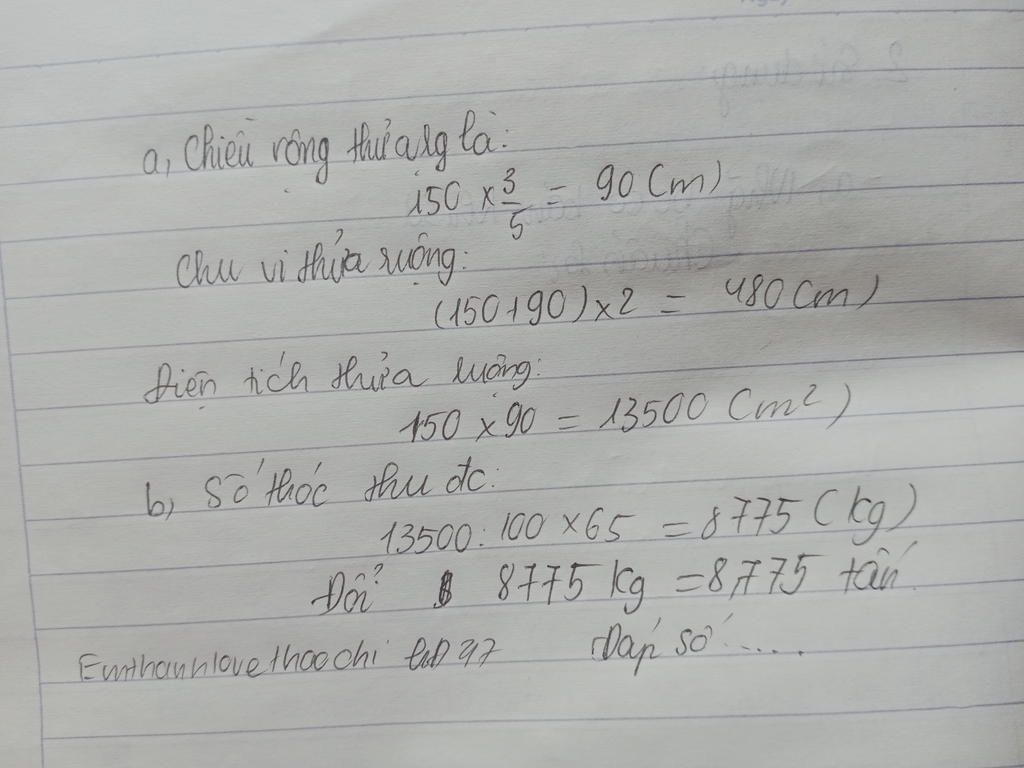 a, Chiều rộng thửa rg là:
150 x 3/5 = 90 (m)
Chu vi thửa ruộng:
(150+90) x 2 = 480 (m)
Diện tích thửa ruộng:
150 x 90 = 13500 (m²)
b, Số thóc thu đc:
13500 : 100 x 65 = 8775 (kg)
Đổi 8775 kg = 8,775 tấn
Đáp số .....